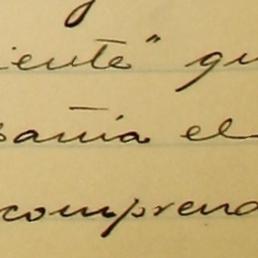 iente" qu
pañia el
comprend